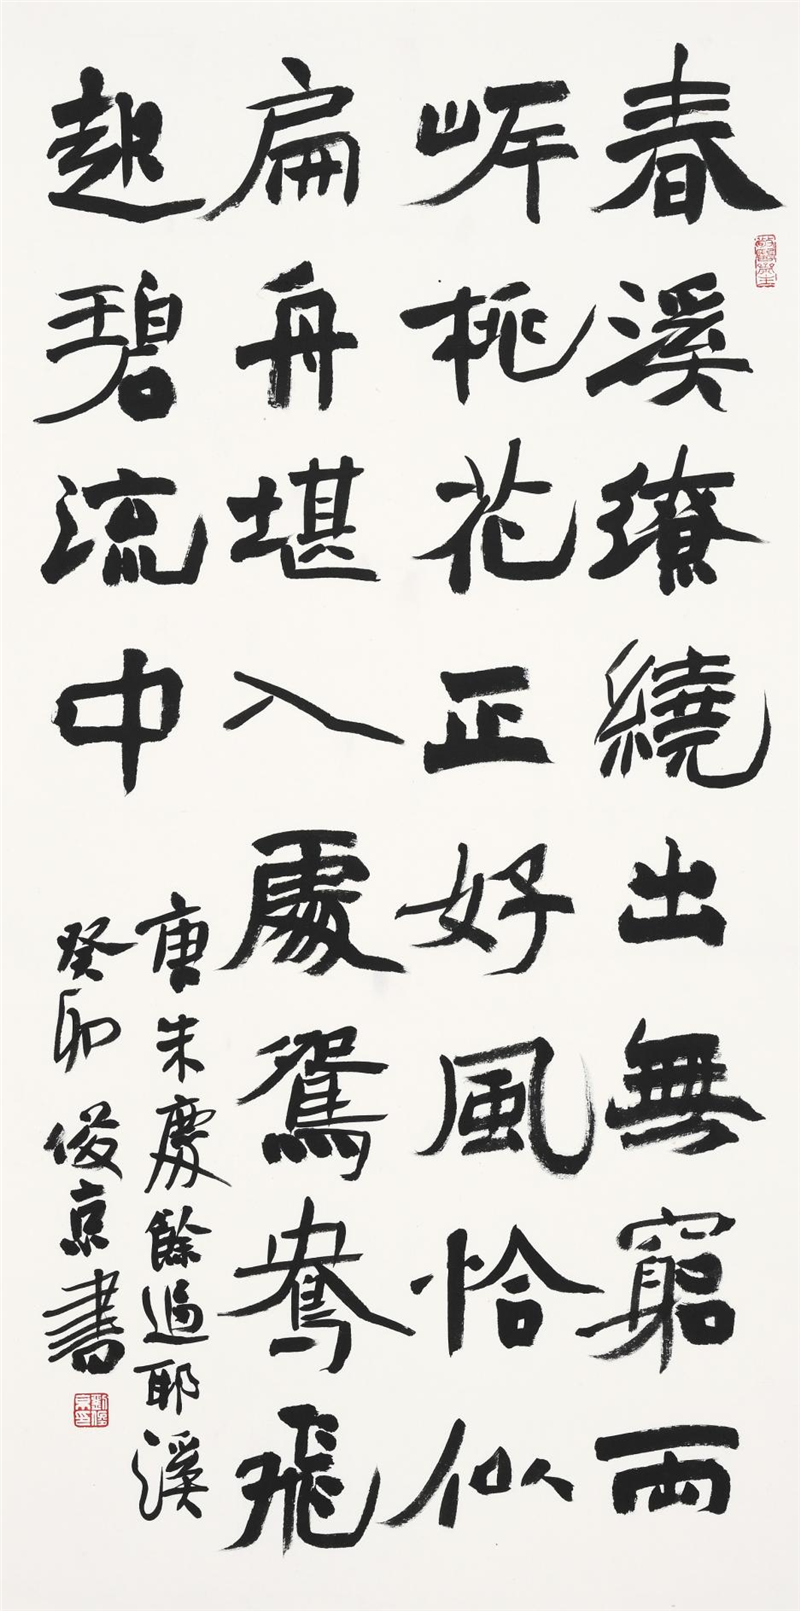 春溪繚繞出無窮兩
岸桃花正好風恰似
扁舟堪入處鴛鴦飛
起碧流中
唐朱慶餘過耶溪
癸卯俊京書
劉俊京印